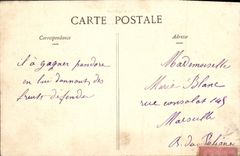 CARTE POSTALE
Correspondance
Adresse
s'à gagner pendore
en lui donnant des
fruits défendu
Mademoiselle
Marie Blanc
rue consolat 145
Marseille
B. du Rhône